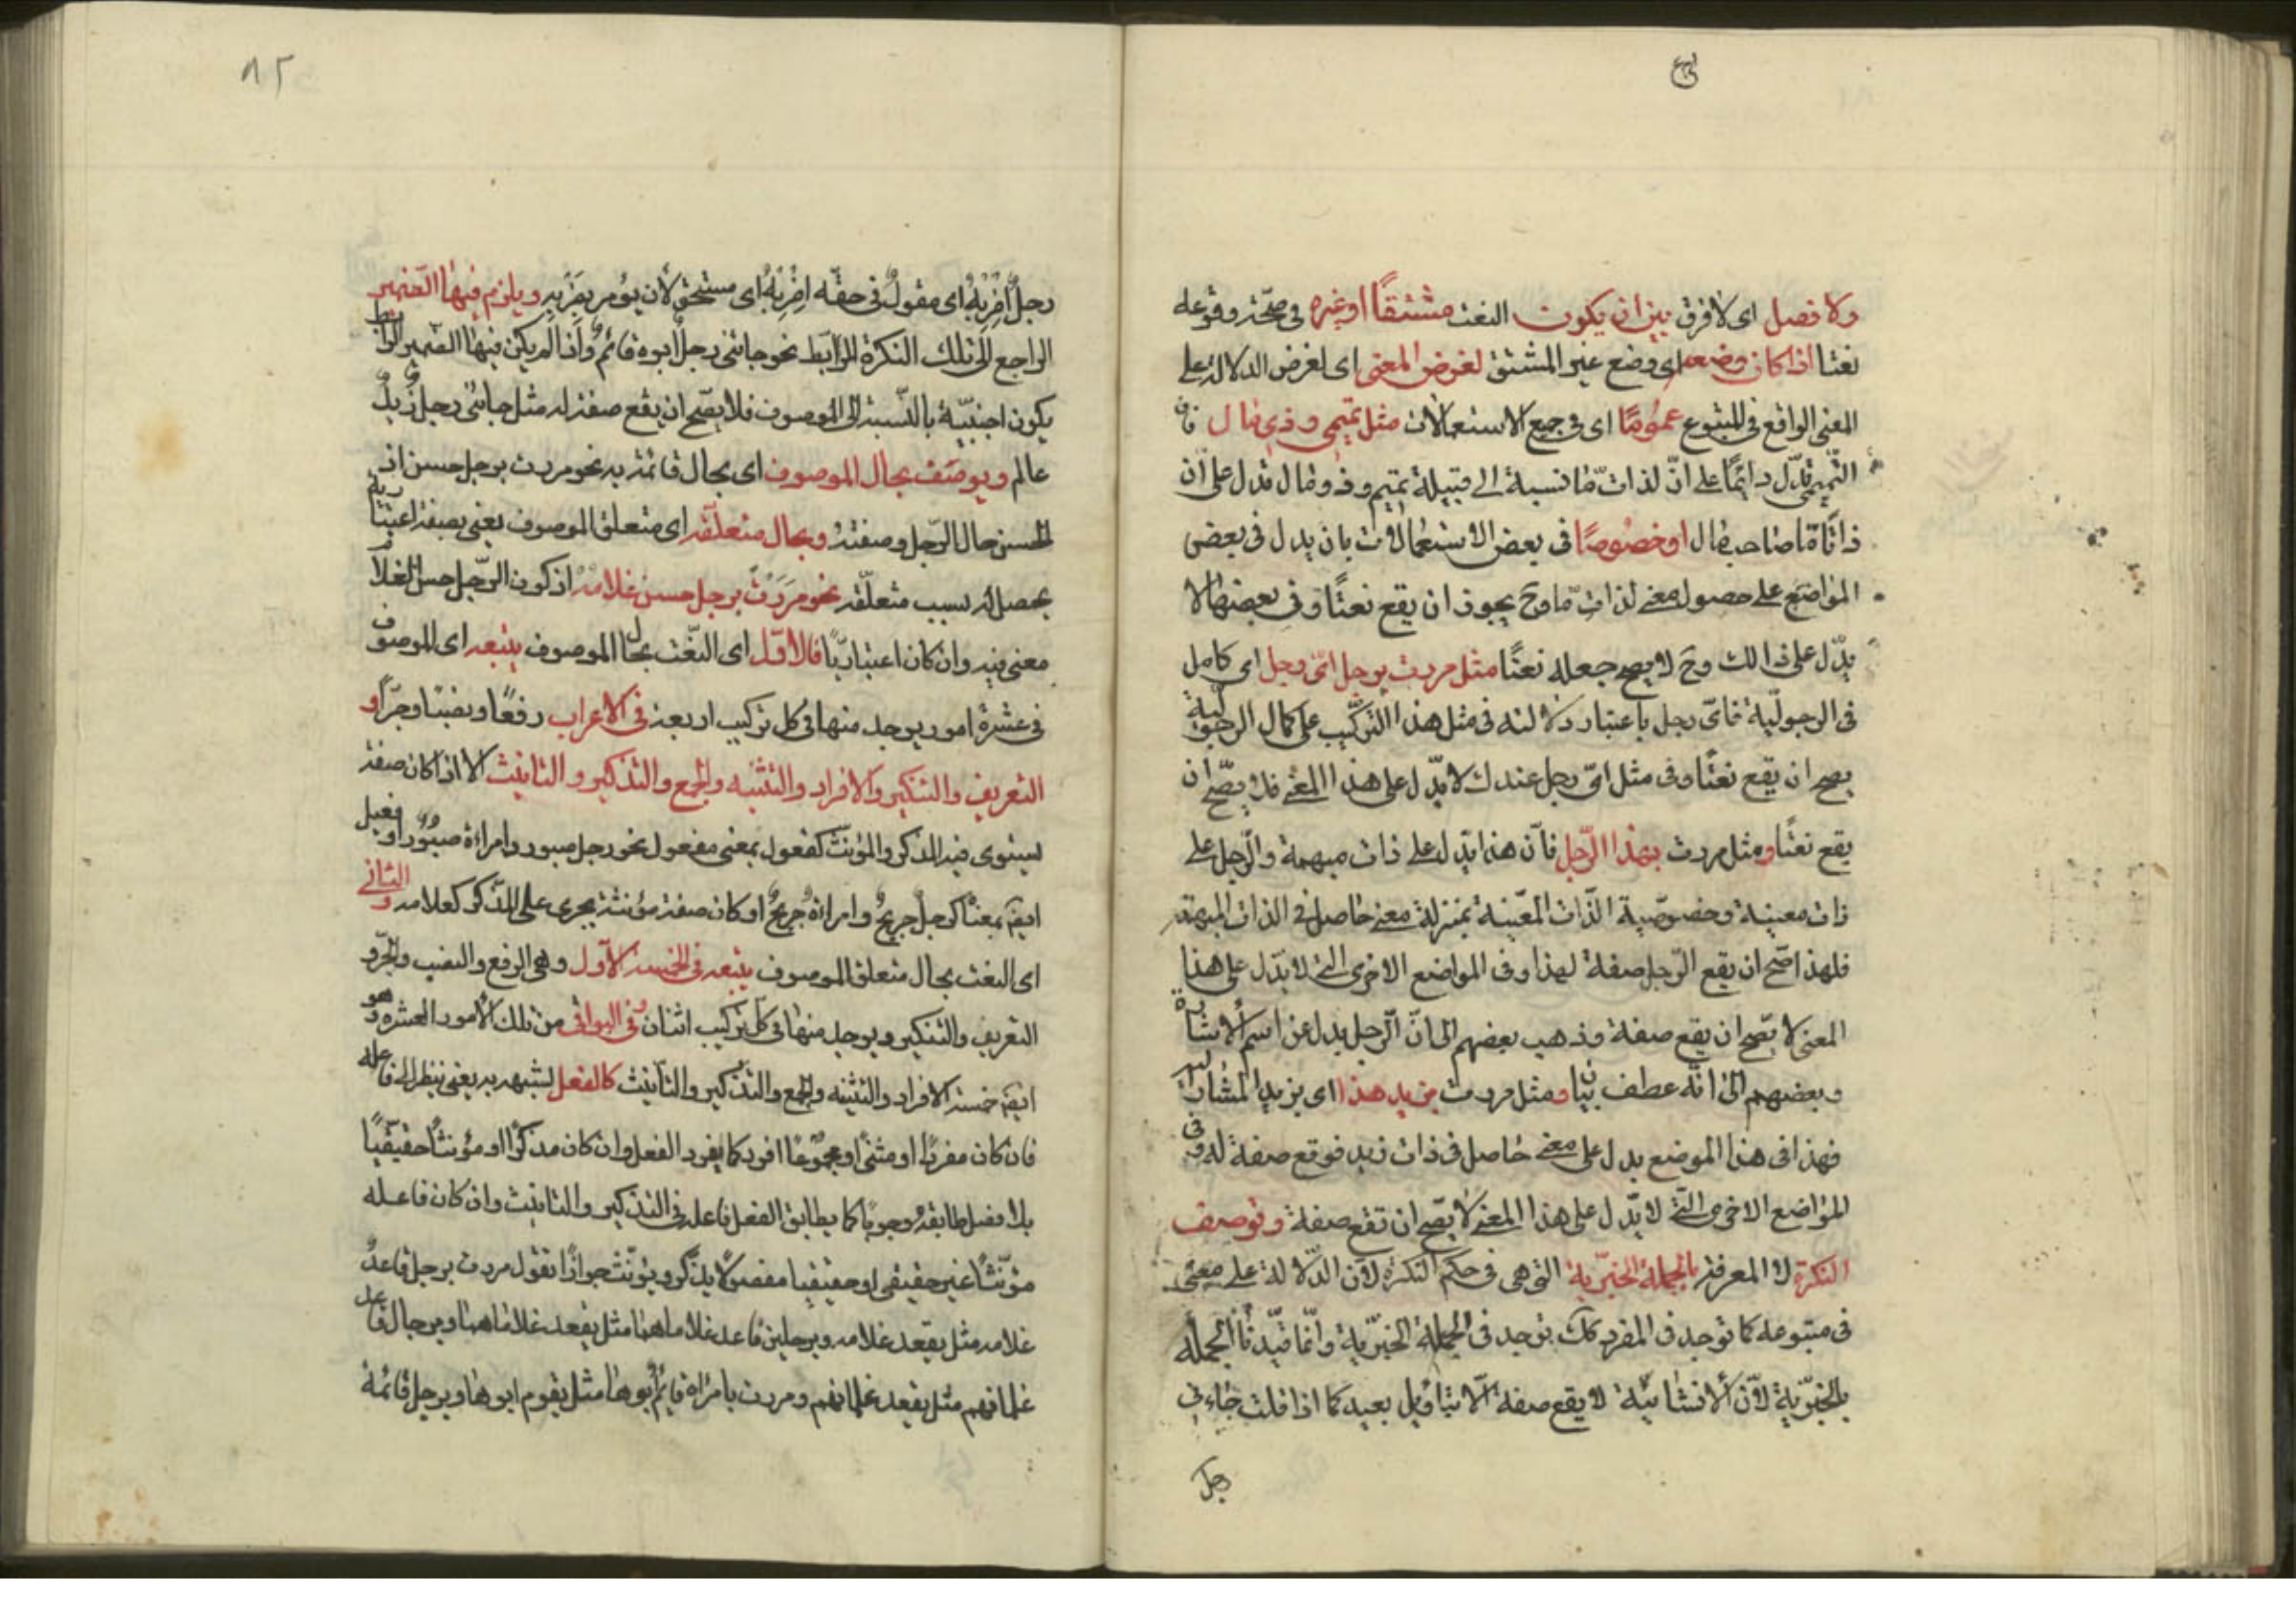 ولا فصل اى لا فرق بين ان يكون النعت مشتقًا او غيره فى صحّة وقوعه
نعتا اذا كان وضعه اى وضع غير المشتق لغرض المعنى اى لغرض الدلالة على
المعنى الواقع فى المتبوع عمومًا اى فى جميع الاستعمالات مثل تميمى وذى مال فان
التّميمى تدلّ دائمًا على انّ لذات مّا نسبة الى قبيلة تميم وذو مال تدل على ان
ذاتًا مّا صاحب مال او خصوصًا فى بعض الاستعمالات بان يدل فى بعض
المواضع على حصول معنى لذات مّا وح يجوز ان يقع نعتًا وفى بعضها لا
يدّل على ذالك وح لا يصح جعله نعتًا مثل مررت برجل اىّ رجل اى كامل
فى الرجوليّة فاىّ رجل باعتبار دلالته فى مثل هذا التركيب على كمال الرجوليّة
يصح ان يقع نعتًا وفى مثل اىّ رجل عندك لا يدّل على هذا المعنى فلا يصّح ان
يقع نعتًا ومثل مررت بهذا الرّجل فانّ هذا يدّل على ذات مبهمة والرّجل على
ذات معينة وخصوصّية الذّات المعّينة بمنزلة معنى حاصل فى الذات المبهمة
فلهذا صّح ان يقع الرّجل صفة لهذا وفى المواضع الاخرى التى لا يدّل على هذا
المعنى لا يصّح ان يقع صفة وذهب بعضهم الى انّ الرّجل بدل عن اسم الاشارة
وبعضهم الى انّه عطف بيان ومثل مررت بزيد هذا اى بزيد المشار اليه
فهذا فى هذا الموضع يدل على معنى حاصل فى ذات زيد فوقع صفة له وفى
المواضع الاخرى التّى لا يدّل على هذا المعنى لا يصّح ان تقع صفة وتوصف
النكرة لا المعرفة بالجملة الخبرّية التى هى فى حكم النكرة لان الدّلالة على معنى
فى متبوعه كما توجد فى المفرد كك توجد فى الجملة الخبرّية وانّما قيّدنا الجملة
بالخبرّية لانّ الانشائيّة لا يقع صفة الّا بتاويل بعيد كما اذا قلت جاءنى
رجل
٨٢
رجلٌ اِضْرِبْهُ اى مقولٌ فى حقّه اِضْرِبْهُ اى مستحق لان يؤمر بضَرْبِهِ ويلزم فيها الضّمير
الراجع الى تلك النكرة للرّابط نحو جائنى رجلٌ ابوه قائمٌ واذا لم يكن فيها الضمير الرابط
يكون اجنبيّة بالنّسبة الى الموصوف فلا يصّح ان يقع صفة له مثل جائنى رجل زيدٌ
عالم ويوصَف بحال الموصوف اى بحال قائمة به نحو مررت برجل حسن اذ
الحسن حال الرّجل وصفته وبحال متعلّقه اى متعلق الموصوف يعنى بصفة اعتبارية
يحصل له بسبب متعلّقه نحو مَرَرْتُ برجل حسن غلامه اذ كون الرّجل حسن الغلام
معنى فيه وان كان اعتباريًّا فالاوّل اى النّعت بحال الموصوف يتبعه اى الموصوف
فى عشرة امور يوجد منها فى كل تركيب اربعة فى الاعراب رفعًا ونصبًا وجرًّا و
التعريف والتنكير والافراد والتثنيه والجمع والتذكير والتانيث الا اذا كان صفة
يستوى فيه المذكر والمؤنّث كفعول بمعنى مفعول نحو رجل صبور وامراة صبورٌ او فعيل
ايضً بمعناه كرجلٌ جريحٌ وامراةٌ جريحٌ او كان صفة مؤنثة يجرى على المذكر كعلامه والثانى
اى النعت بحال متعلق الموصوف يتبعه فى الخمسة الاوّل وهى الرفع والنصب والجرّ و
التعريف والتنكير ويوجد منها فى كلّ تركيب اثنان وفى البواقى من تلك الامور العشره وهو
ايضً خمسة الافراد والتثنيه والجمع والتذكير والتّانيث كالفعل لشبهه به يعنى ينظر الى فاعله
فان كان مفردًا او مثنًى او مجموعًا افرد كما يفرد الفعل وان كان مذكرًا او مؤنثًا حقيقيًا
بلا فصل طابقه وجوبًا كما يطابق الفعل فاعله فى التذكير والتانيث وان كان فاعله
مؤنّثًا غير حقيقى او حقيقيا مفصولا يذكّر ويؤنّث جوازًا تقول مررت برجل قاعدٌ
غلامه مثل يقعد غلامه وبرجلين قاعد غلاماهما مثل يقعد غلاماهما وبرجال قاعد
غلمانهم مثل يقعد غلمانهم ومررت بامراة قائم ابوها مثل يقوم ابوها وبرجل قائمة